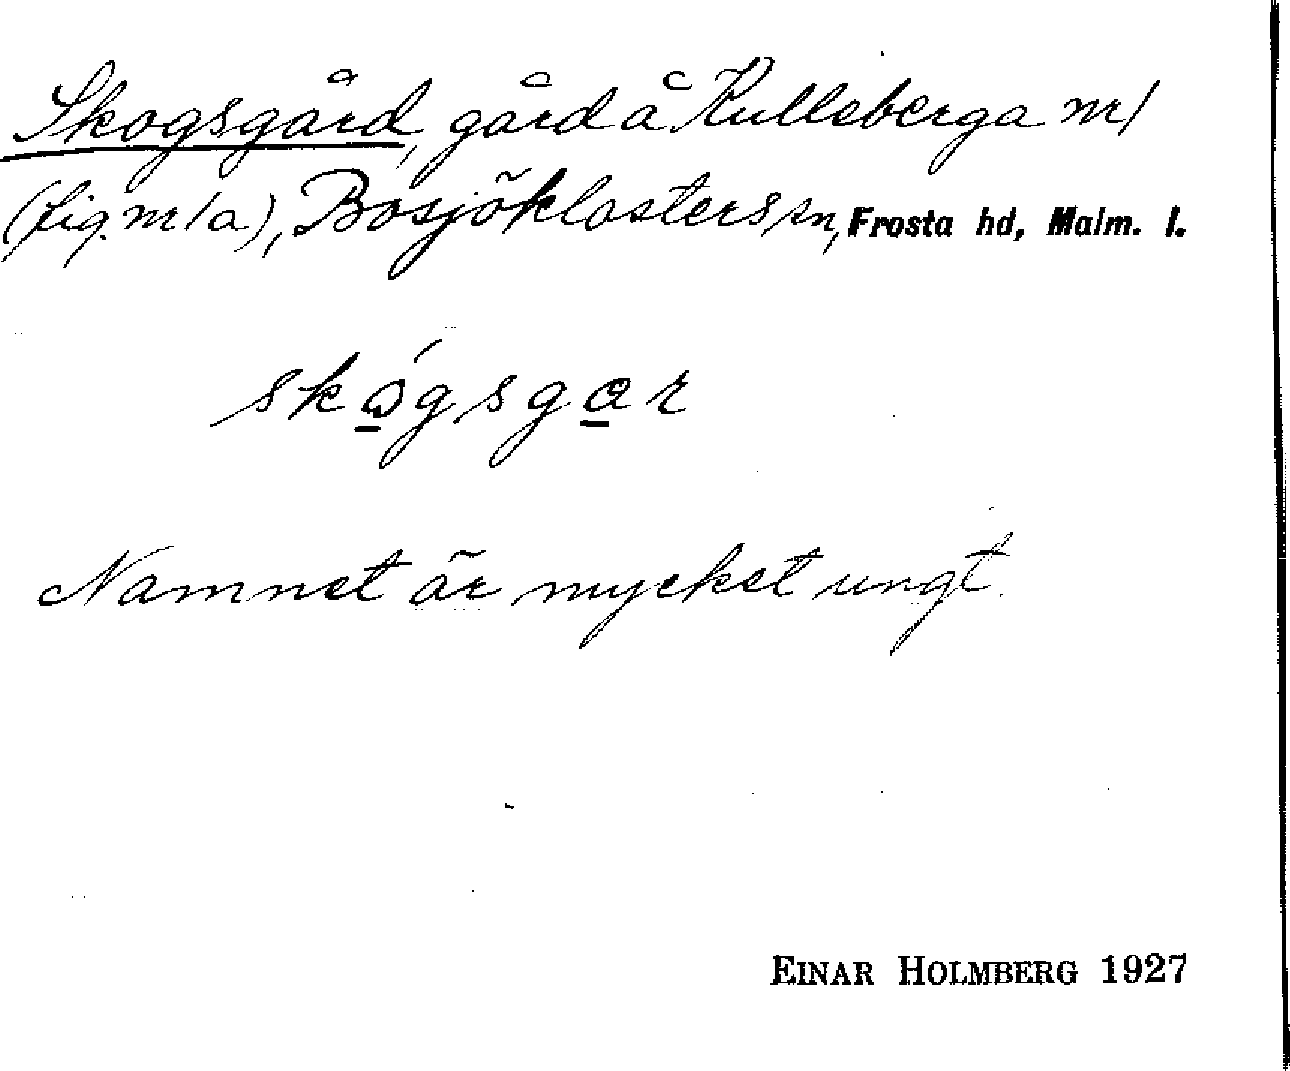 Skogsgård, gård å Kulleberga nr 1
(fig. nr 1a), Bosjöklosters sn, Frosta hd, Malm. l.
sko̲gsga̲r
Namnet är mycket ungt.
EINAR HOLMBERG 1927